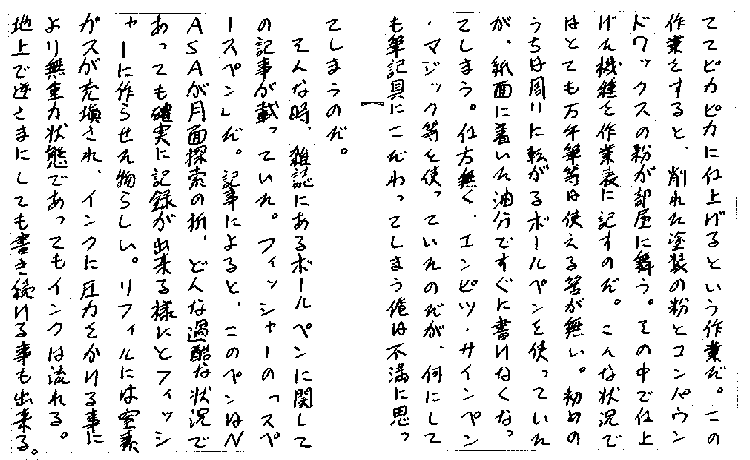 ててピカピカに仕上げるという作業だ。この
作業をすると、削れた塗装の粉とコンパウン
ドワックスの粉が部屋に舞う。その中で仕上
げた機種を作業表に記すのだ。こんな状況で
はとても万年筆等は使える筈が無い。初めの
うちは周りに転がるボールペンを使っていた
が、紙面に着いた油分ですぐに書けなくなっ
てしまう。仕方無く、エンピツ・サインペン
・マジック等を使っていたのだが、何にして
も筆記具にこだわってしまう俺は不満に思っ
てしまうのだ。
そんな時、雑誌にあるボールペンに関して
の記事が載っていた。フィッシャーの「スペ
ースペン」だ。記事によると、このペンはN
ASAが月面探索の折、どんな過酷な状況で
あっても確実に記録が出来る様にとフィッシ
ャーに作らせた物らしい。リフィルには窒素
ガスが充填され、インクに圧力をかける事に
より無重力状態であってもインクは流れる。
地上で逆さまにしても書き続ける事も出来る。